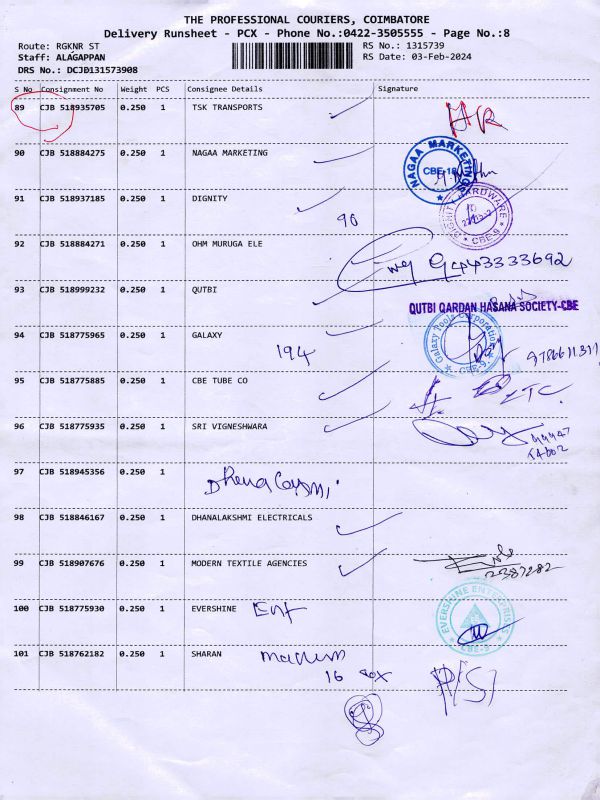 THE PROFESSIONAL COURIERS, COIMBATORE
Delivery Runsheet - PCX - Phone No.:0422-3505555 - Page No.:8
Route: RGKNR ST
RS No.: 1315739
Staff: ALAGAPPAN
RS Date: 03-Feb-2024
DRS No.: DCJD131573908
S No Consignment No Weight PCS Consignee Details Signature
89 CJB 518935705 0.250 1 TSK TRANSPORTS
90 CJB 518884275 0.250 1 NAGAA MARKETING
NAGAA MARKETING
CBE-18
91 CJB 518937185 0.250 1 DIGNITY
HARDWARE
CBE-9
90
92 CJB 518884271 0.250 1 OHM MURUGA ELE
9443333692
93 CJB 518999232 0.250 1 QUTBI
QUTBI QARDAN HASANA SOCIETY-CBE
94 CJB 518775965 0.250 1 GALAXY
Galaxy Tools Corporation
CBE-9
194
95 CJB 518775885 0.250 1 CBE TUBE CO
96 CJB 518775935 0.250 1 SRI VIGNESHWARA
97 CJB 518945356 0.250 1
98 CJB 518846167 0.250 1 DHANALAKSHMI ELECTRICALS
99 CJB 518907676 0.250 1 MODERN TEXTILE AGENCIES
2387282
100 CJB 518775930 0.250 1 EVERSHINE Ent
EVERSHINE ENTERPRISES
CBE-9
101 CJB 518762182 0.250 1 SHARAN
16